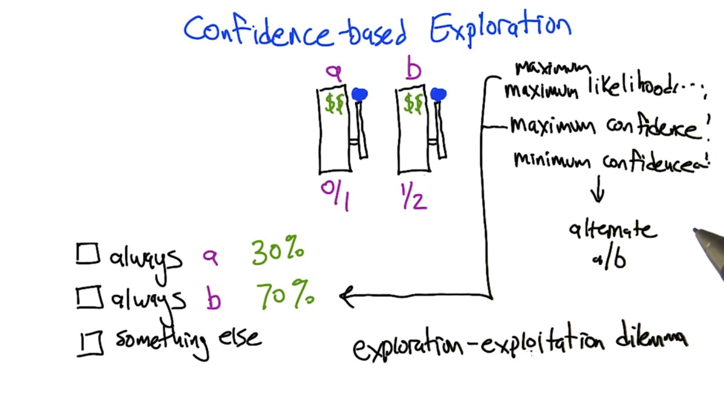 Confidence-based Exploration
a b
$$ $$
0/1 1/2
maximum
maximum likelihood...
maximum confidence!
minimum confidence
alternate
a/b
always a 30%
always b 70%
something else
exploration-exploitation dilemma